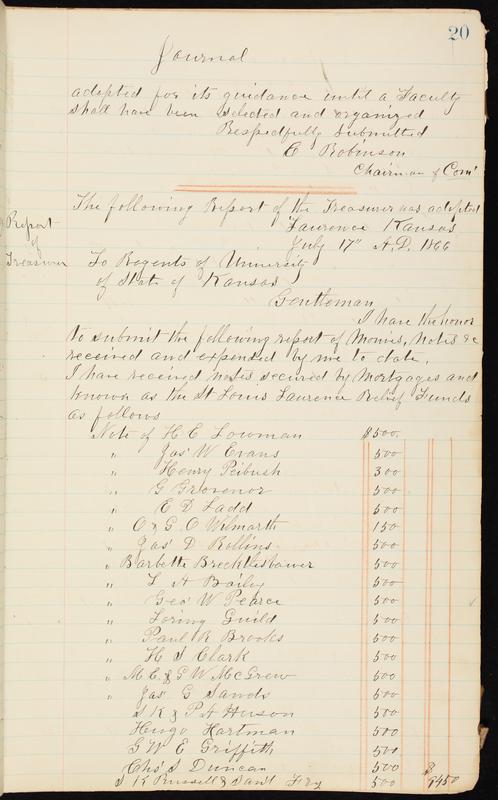 20
Journal
adopted for its guidance until a Faculty
shall have been selected and organized
Respectfully Submitted
C Robinson
Chairman of Com'
The following Report of the Treasurer was adopted
Report
of
Treasurer
Lawrence Kansas
July 17" A.D. 1866
To Regents of University
of State of Kansas
Gentleman
I have the honor
to submit the following report of Monies, Notes &c
received and expended by me to date.
I have received notes secured by Mortgages and
known as the St Louis Lawrence Relief Funds
as follows
Note of H E Lowman $500.
" Jas' W Evans 500
" Henry Peibush 300
" G Grosvenor 500
" E D Ladd 500
" O & G. O Wilmarth 150
" Jas' D Rollins 500
" Barbette Brechtlesbauer 500
" L A Bailey 500
" Geo' W Pearce 500
" Loring Guild 500
" Paul R Brooks 500
" H S Clark 500
" M E. & G W McGrew 500
" Jas' G Sands 500
S K & P A Huson 500
Hugo Hartman 500
G W E Griffith 500
Chs' S Duncan 500 $
S K Russell & Saml Fry 500 9450